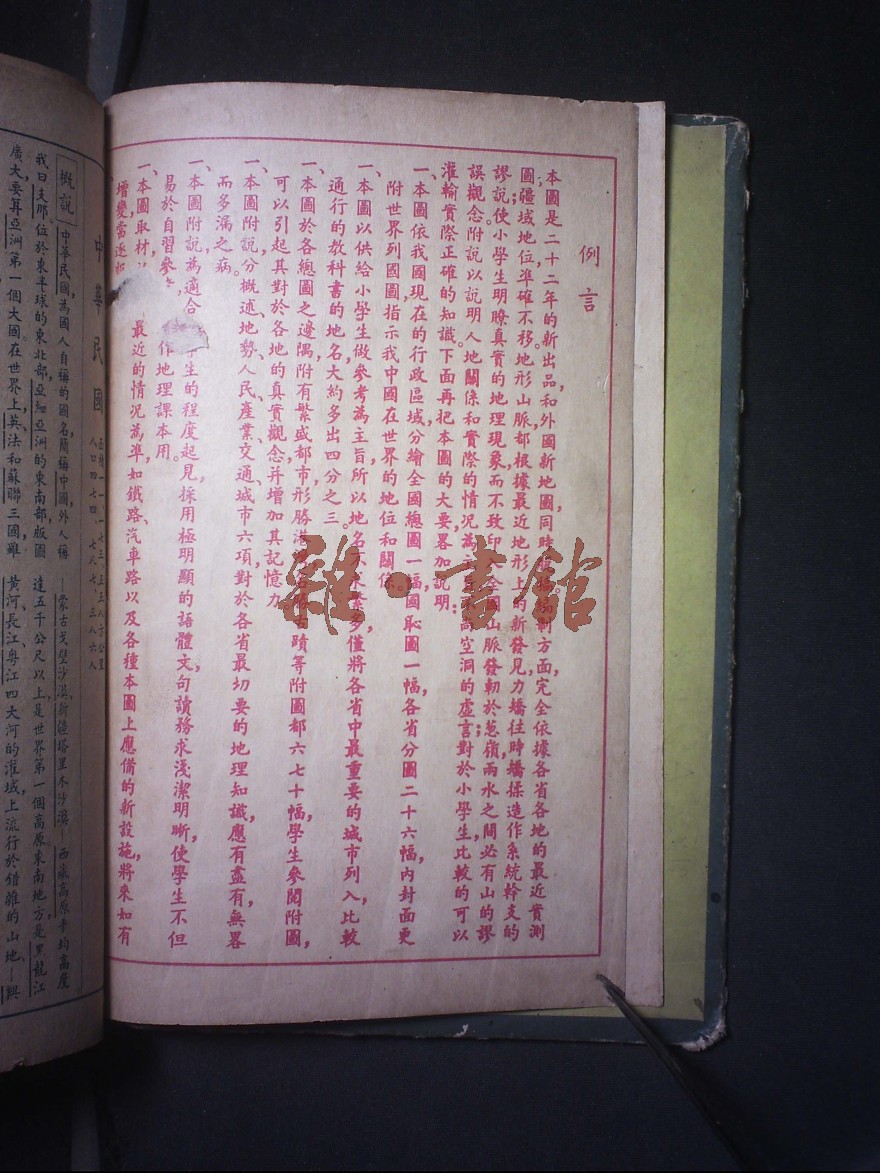 例言
本圖是二十二年的新出品,和外國新地圖同時 編制方面,完全依據各省各地的最近實測
圖;疆域地位,準確不移。地形山脈都根據最近地形上的新發見,力矯往時矯揉造作系統幹支的
謬說,使小學生明瞭真實的地理現象,而不致印入全國山脈發軔於葱嶺,兩水之間必有山的謬
誤觀念。附說以說明人地關係和實際的情況為 高空洞的虛言;對於小學生,比較的可以
灌輸實際正確的知識。下面再把本圖的大要,畧加說明:
一、本圖依我國現在的行政區域,分繪全國總圖一幅,國恥圖一幅,各省分圖二十六幅,內封面更
附世界列國圖,指示我中國在世界的地位和關係。
一、本圖以供給小學生做參考為主旨,所以地名不求繁多,僅將各省中最重要的城市列入,比較
通行的教科書的地名,大約多出四分之三。
一、本圖於各總圖之邊隅,附有繁盛都市、形勝港 古蹟等附圖都六七十幅,學生參閱附圖,
可以引起其對於各地的真實觀念,并增加其記憶力。
一、本圖附說,分概述、地勢、人民、產業、交通、城市六項,對於各省最切要的地理知識,應有盡有,無畧
而多漏之病。
一、本圖附說,為適合 學生的程度起見,採用極明顯的語體文,句讀務求淺潔明晰,使學生不但
易於自習參 作地理課本用。
一、本圖取材,以 最近的情況為準,如鐵路、汽車路以及各種本圖上應備的新設施,將來如有
增變,當逐
中華民國
面積一一、一七三、五五八方公里
人口四七四、七八七、三八六人
概說
中華民國為國人自稱的國名,簡稱中國,外人稱
我曰支那。位於東半球的東北部,亞細亞洲的東南部,版圖
廣大,要算亞洲第一個大國,在世界上英、法和蘇聯三國,雖
—蒙古戈壁沙漠、新疆塔里木沙漠—西藏高原平均高度
達五千公尺以上,是世界第一個高原。東南地方是黑龍江、
黃河、長江、粵江四大河的淮域,上流行於錯雜的山地—興
雜·書館